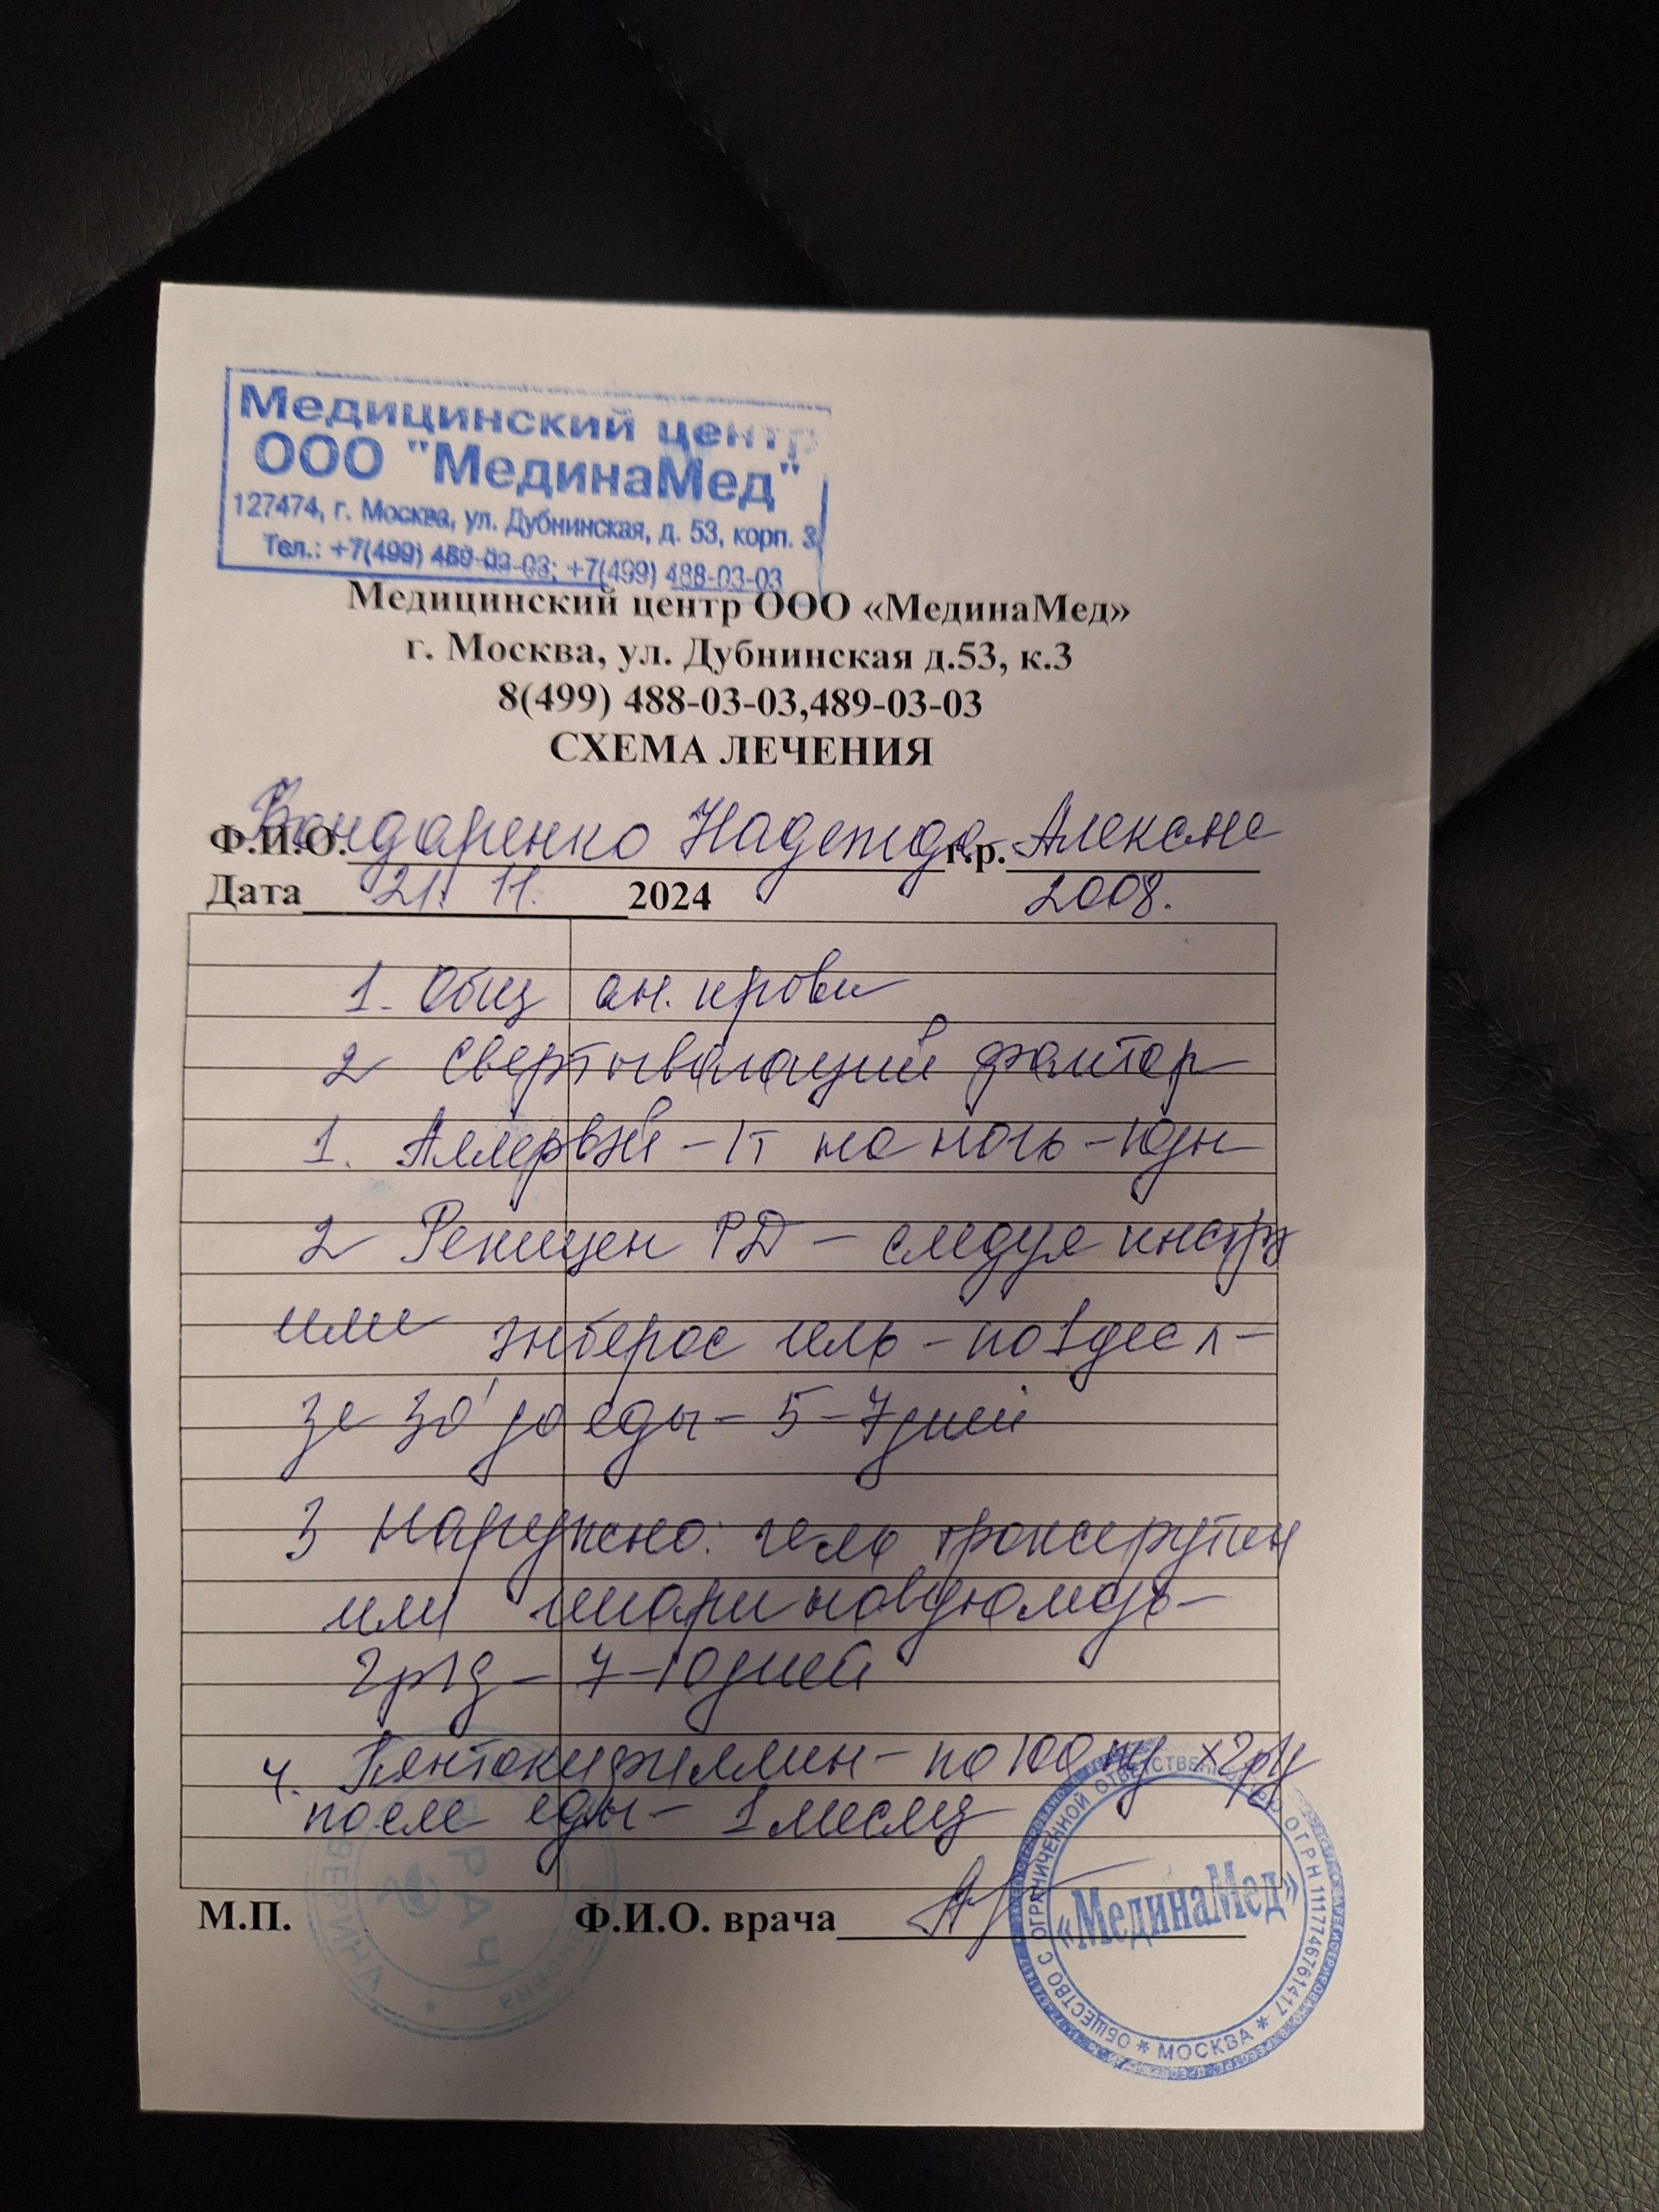 Медицинский центр
ООО "МединаМед"
127474, г. Москва, ул. Дубнинская, д. 53, корп. 3
Тел.: +7(499) 489-03-03; +7(499) 488-03-03
Медицинский центр ООО «МединаМед»
г. Москва, ул. Дубнинская д.53, к.3
8(499) 488-03-03,489-03-03
СХЕМА ЛЕЧЕНИЯ
Ф.И.О. Бондаренко Надежда г.р. Алексне
Дата 21. 11. 2024 2008.
1. Общ ан. крови
2 Свертывающий фактор
1. Аллервэй - 1т на ночь - 10дн
2 Рекицен РД - следуя инстр
или энтерос гель - по 1 дес л -
за 30' до еды - 5-7 дней
3 Наружно: гель троксерутин
или
2р/д - 7-10 дней
4. Пентоксифиллин - по 100 мг х 2р/д
после еды - 1 месяц
М.П. Ф.И.О. врача
ВРАЧ
«МединаМед»
ОБЩЕСТВО С ОГРАНИЧЕННОЙ ОТВЕТСТВЕННОСТЬЮ ОГРН 1117746761417
* МОСКВА *